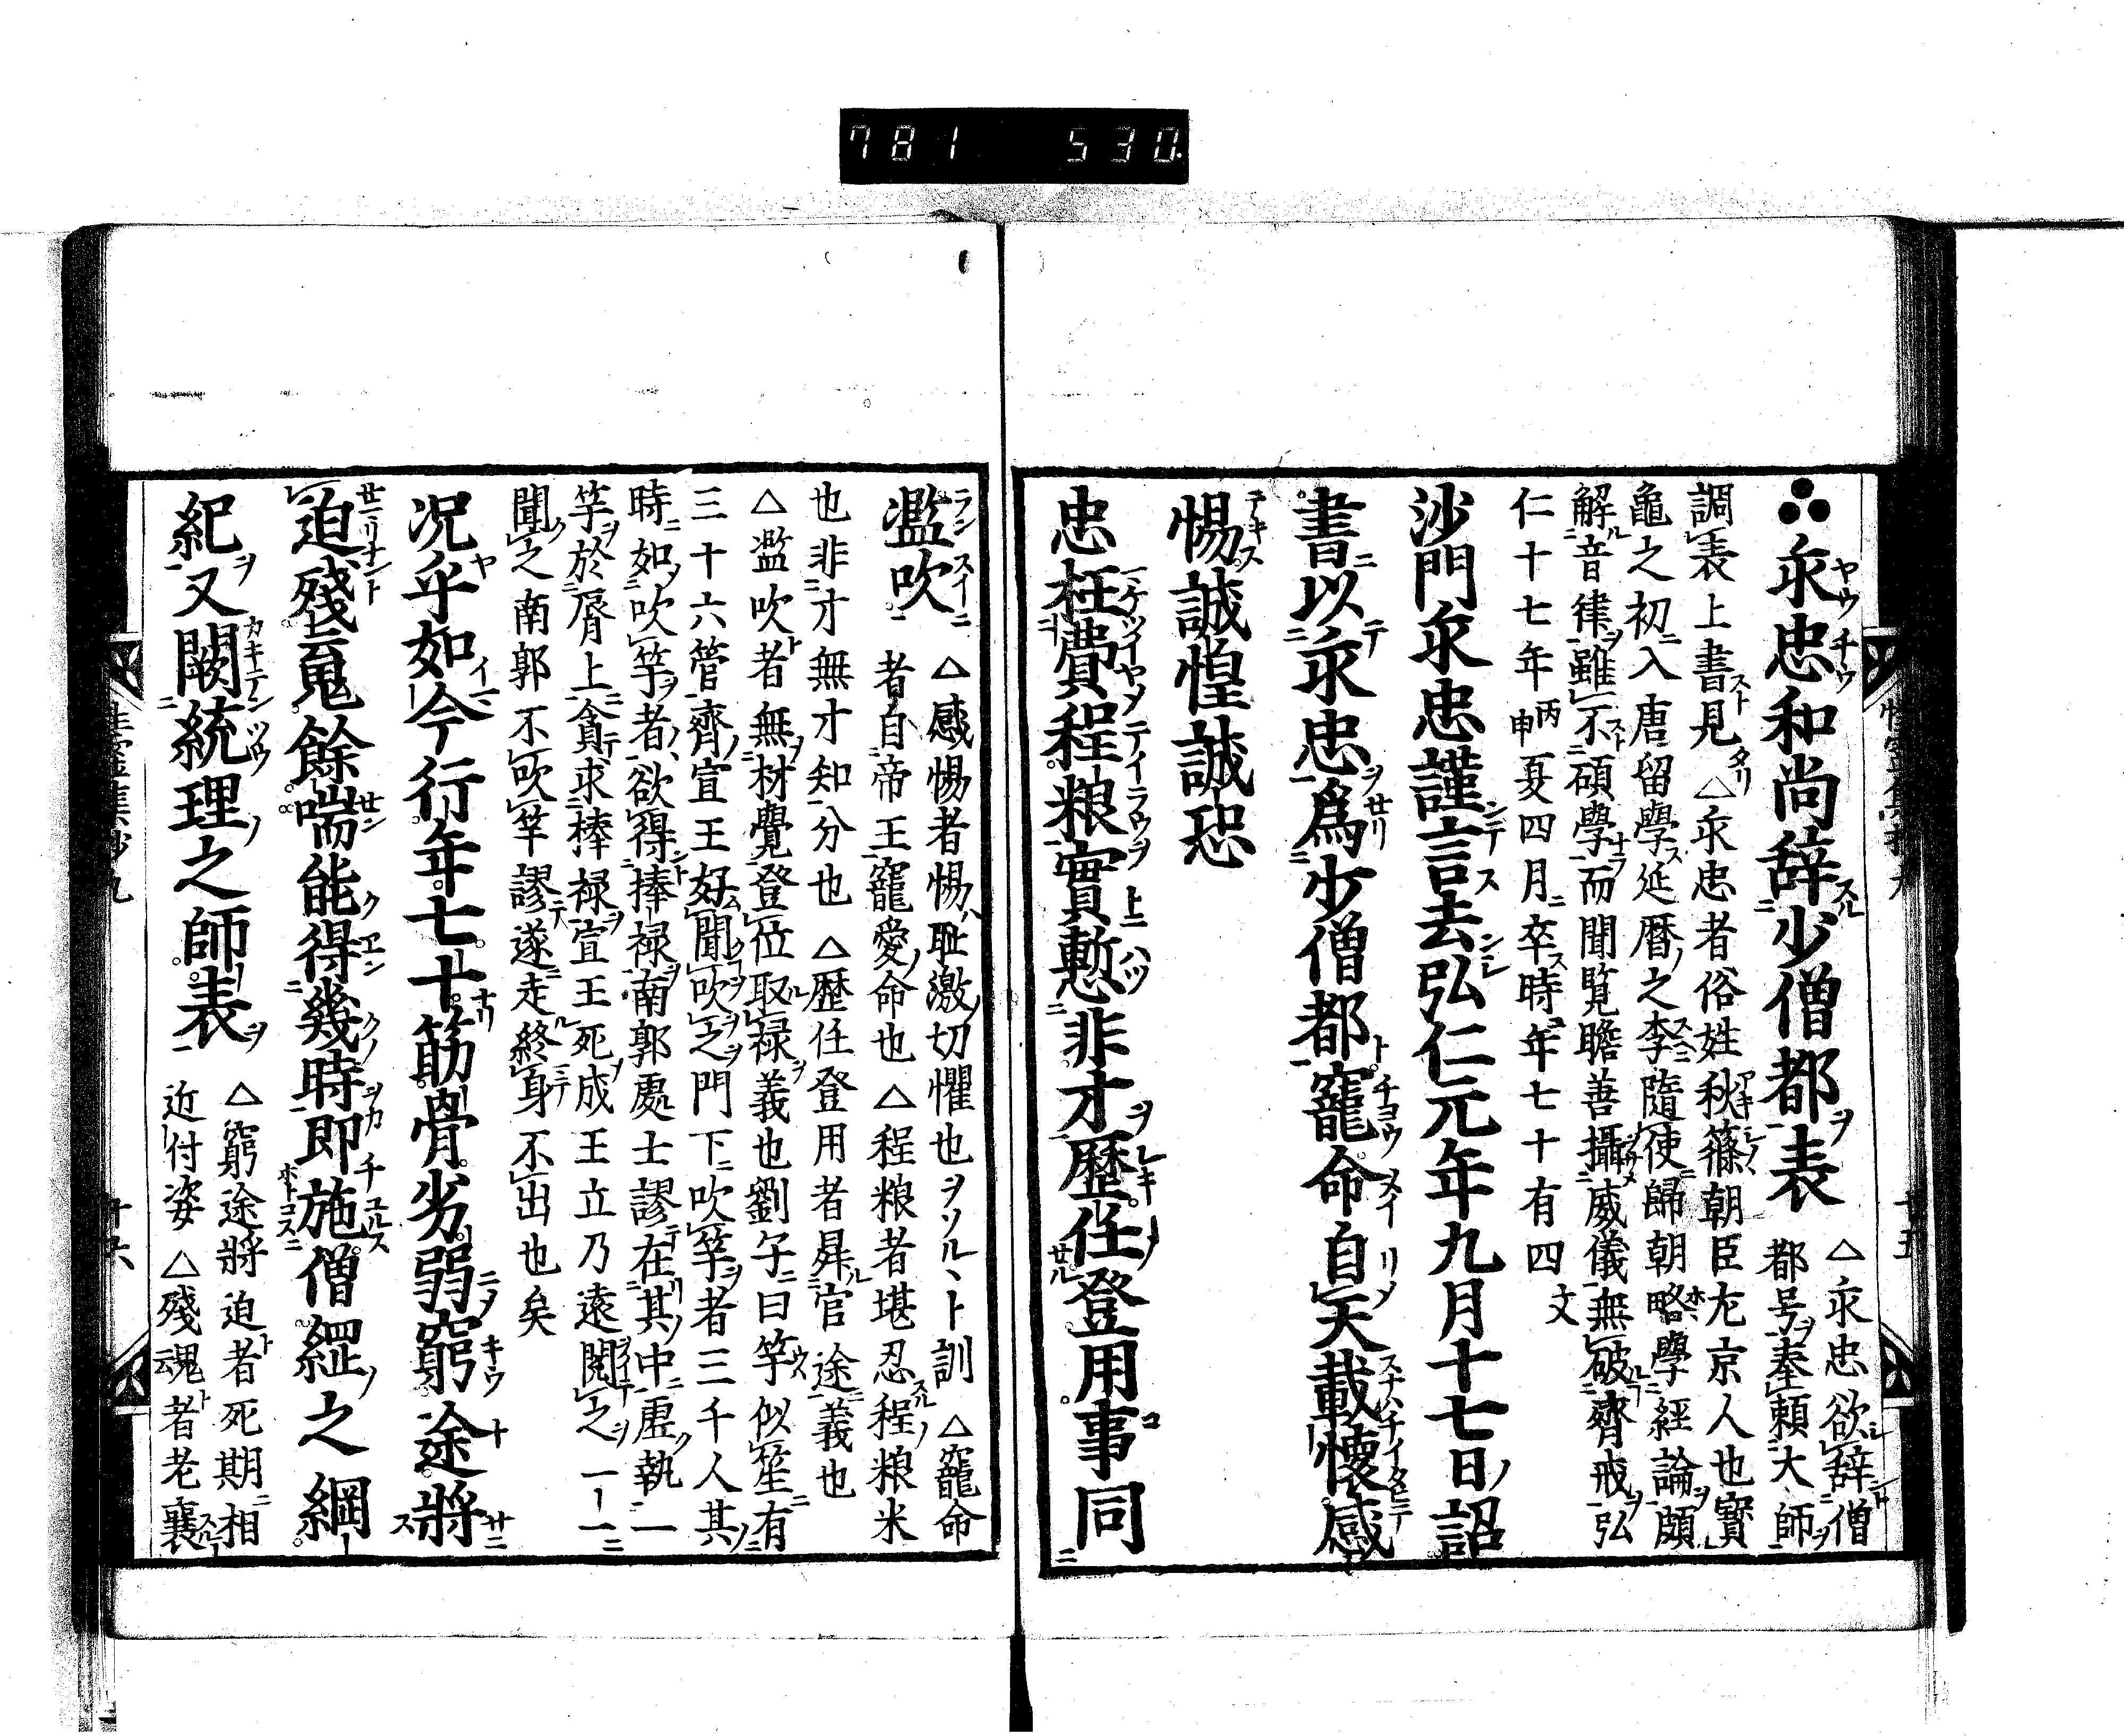 781 530.
永忠和尚辞少僧都表 △永忠欲辞僧
都号奉頼大師
調表上書見 △永忠者俗姓秋篠朝臣左京人也寳
龜之初入唐留學延暦之李隨使歸朝略學經論頗
解音律雖不碩學而聞覧瞻善攝威儀無破齊戒弘
仁十七年丙申夏四月卒時年七十有四文
沙門永忠謹言去弘仁元年九月十七日詔
書以永忠爲少僧都寵命自天載懷感
惕誠惶誠恐
忠枉費程粮實慙非才歴任登用事同
濫吹 △感惕者惕耻激切懼也ヲソルヽト訓 △寵命
者自帝王寵愛命也 △程粮者堪忍程粮米
也非才無才知分也 △歴任登用者昇官途義也
△濫吹者無材覺登位取禄義也劉午曰竽似笙有
三十六管齊宣王好聞吹之門下吹竽者三千人其
時如吹竽者欲得捧禄南郭處士謬在其中虚執一
竽於唇上貪求捧禄宣王死成王立乃遠閲之一一
聞之南郭不吹竽謬遂走終身不出也矣
况乎如今行年七十筋骨劣弱窮途將
迫殘䰟餘喘能得幾時即施僧緸之綱
紀又闕統理之師表 △窮途將迫者死期相
近付姿 △殘魂者老衰